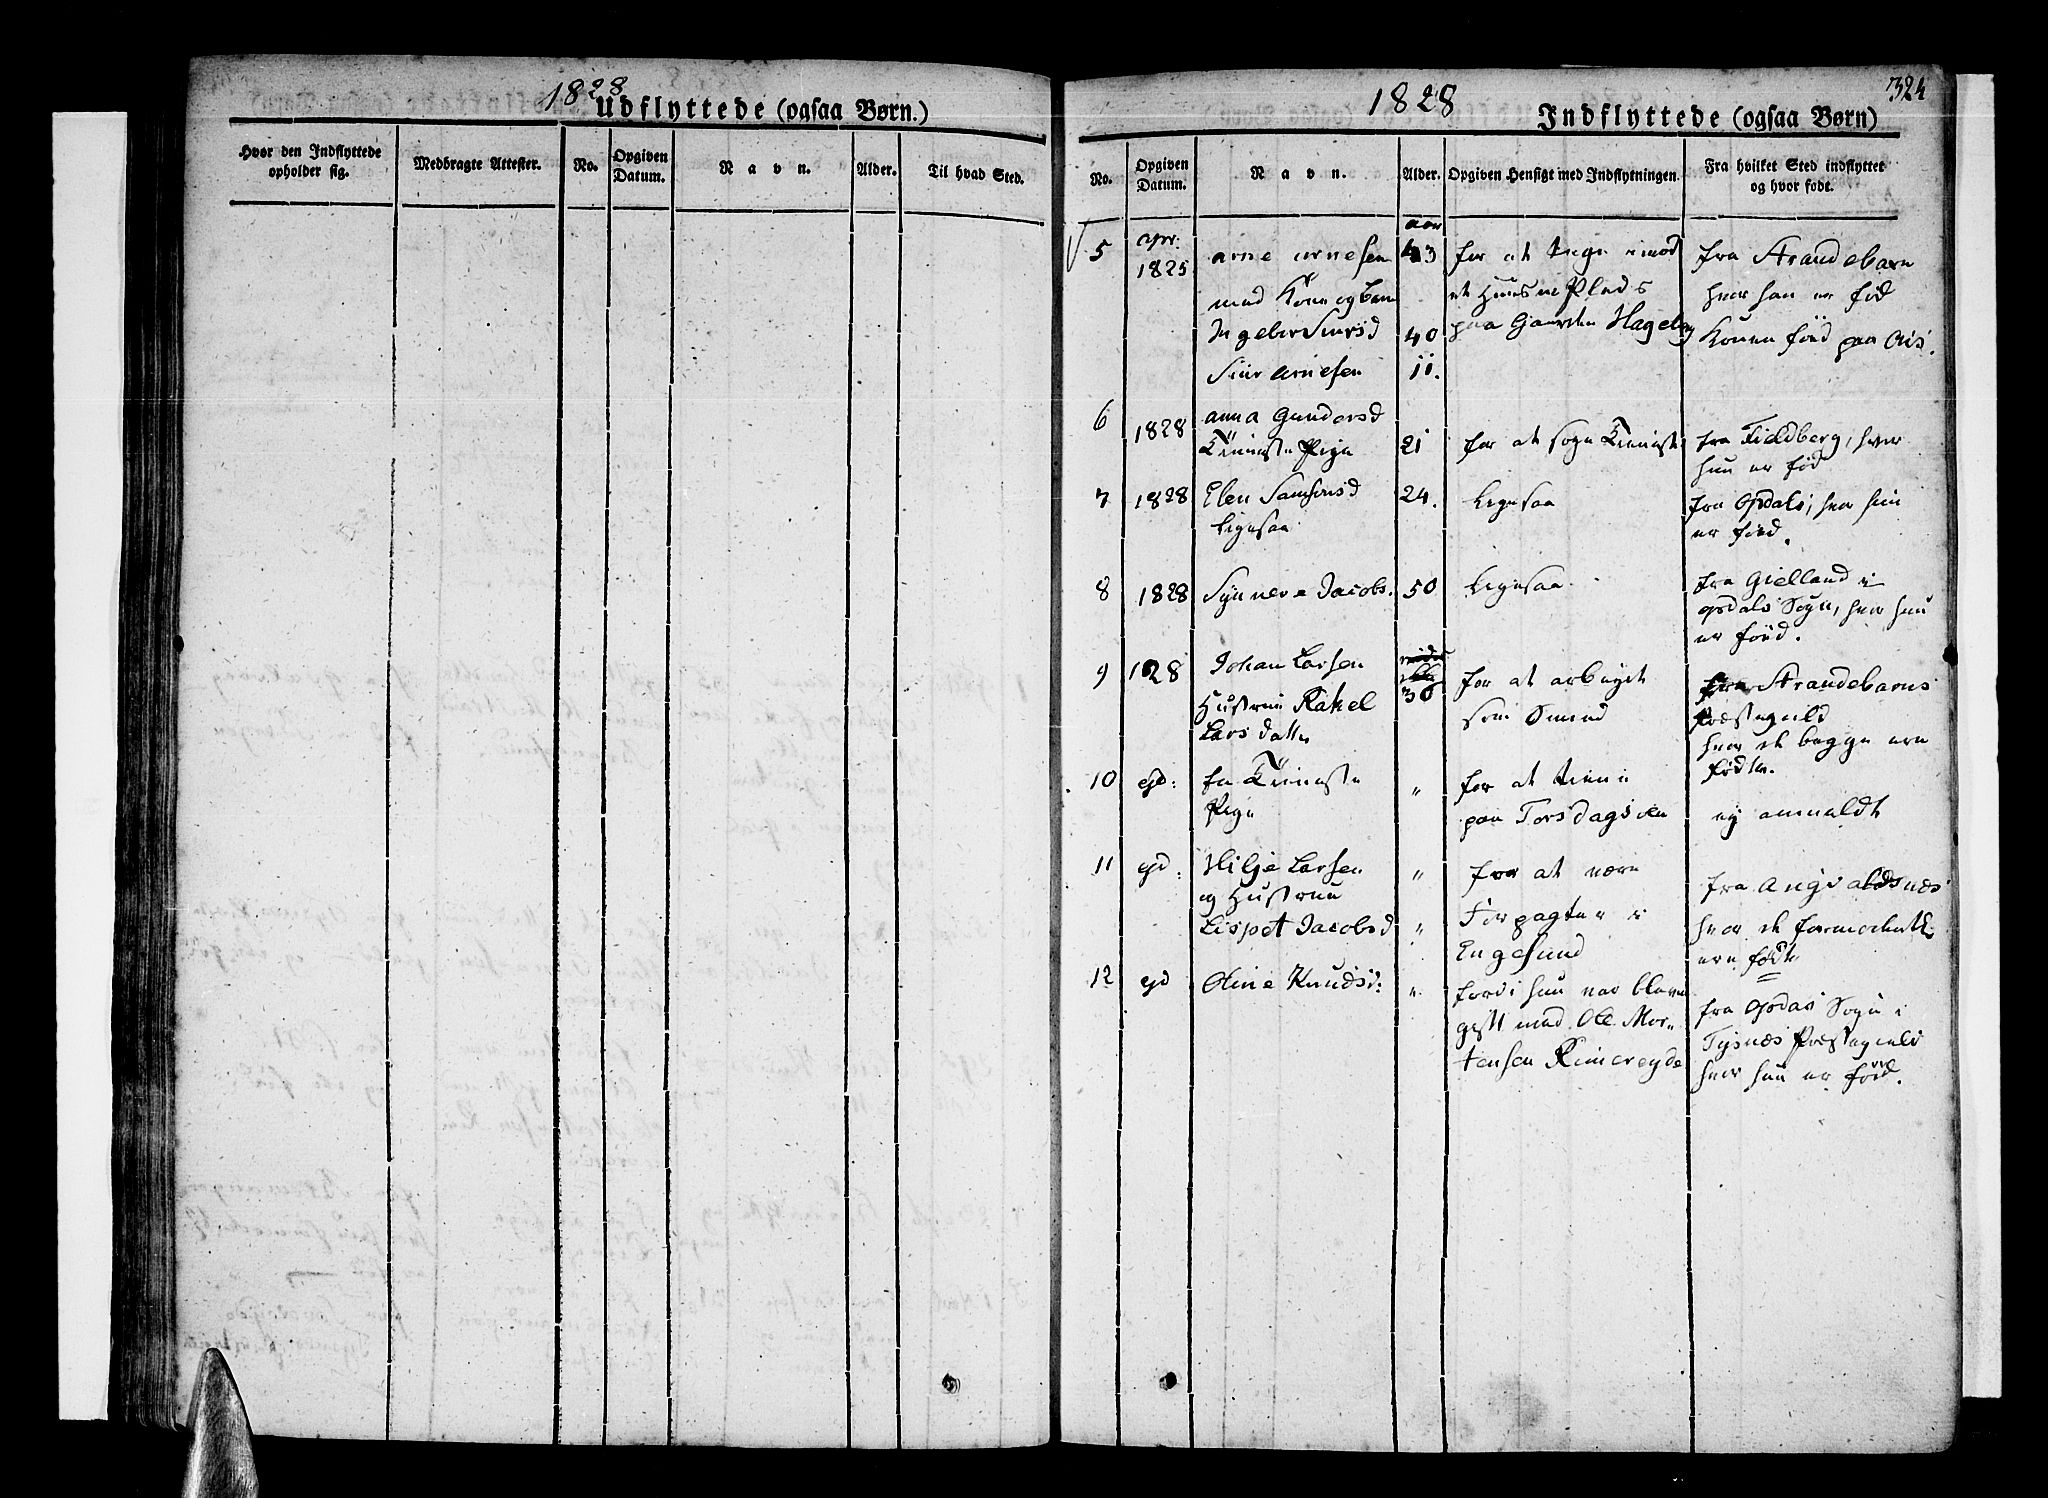 1828
Udflyttede (ogsaa Børn.)
Hvor den Indflyttede
opholder sig.
Medbragte Attester.
No.
Opgiven
Datum.
Navn.
Alder.
Til hvad Sted.
324
1828
Indflyttede (ogsaa Børn)
No.
Opgiven
Datum.
Navn.
Alder.
Opgiven Hensigt med Indflytningen.
Fra hvilket Sted indflyttet
og hvor født.
5
apr:
1825
Arne Arnesen
med Kone og
Ingebor Siursd
Siur Arnesen
aar
43
40
11.
for at tage imod
et Huusmands Plads
paa Gaarden
fra Strandebarn
hvor han er fød
Konen föed paa
6
1828
Anna Gundersd
Tieneste Pige
21
for at søge Tieniste
fra Fieldberg, hvor
hun er fød
7
1828
Elen Samsonsd
ligesaa
24.
Ligesaa
fra Opdals, hvor hun
er föed.
8
1828
Synneve Jacobs.
50
Ligesaa
fra Gielland i
Opdals Sogn, hvor hun
er föed.
9
128
Johan Larsen
Hustrue Rakel
Larsdatter
36
for at arbeyde
som Smed
fra Strandebarns
Præstegield
hvor de begge ere
födte.
10
ejd:
En Tieneste
Pige
"
for at tiene
paa Torsdagsøen
ej anmeldt
11
ejd:
Hilje Larsen
og Hustrue
Lispet Jacobsd
"
"
for at være
Forpagter i
Engesund
fra
hvor de formodentl:
ere födte
12
ejd
Oline Knudsd:
"
fordi hun var bleven
gift med Ole Mor-
tensen Rimereyde
fra Opdals Sogn i
Tysnæs Præstegield
hvor hun er föed.